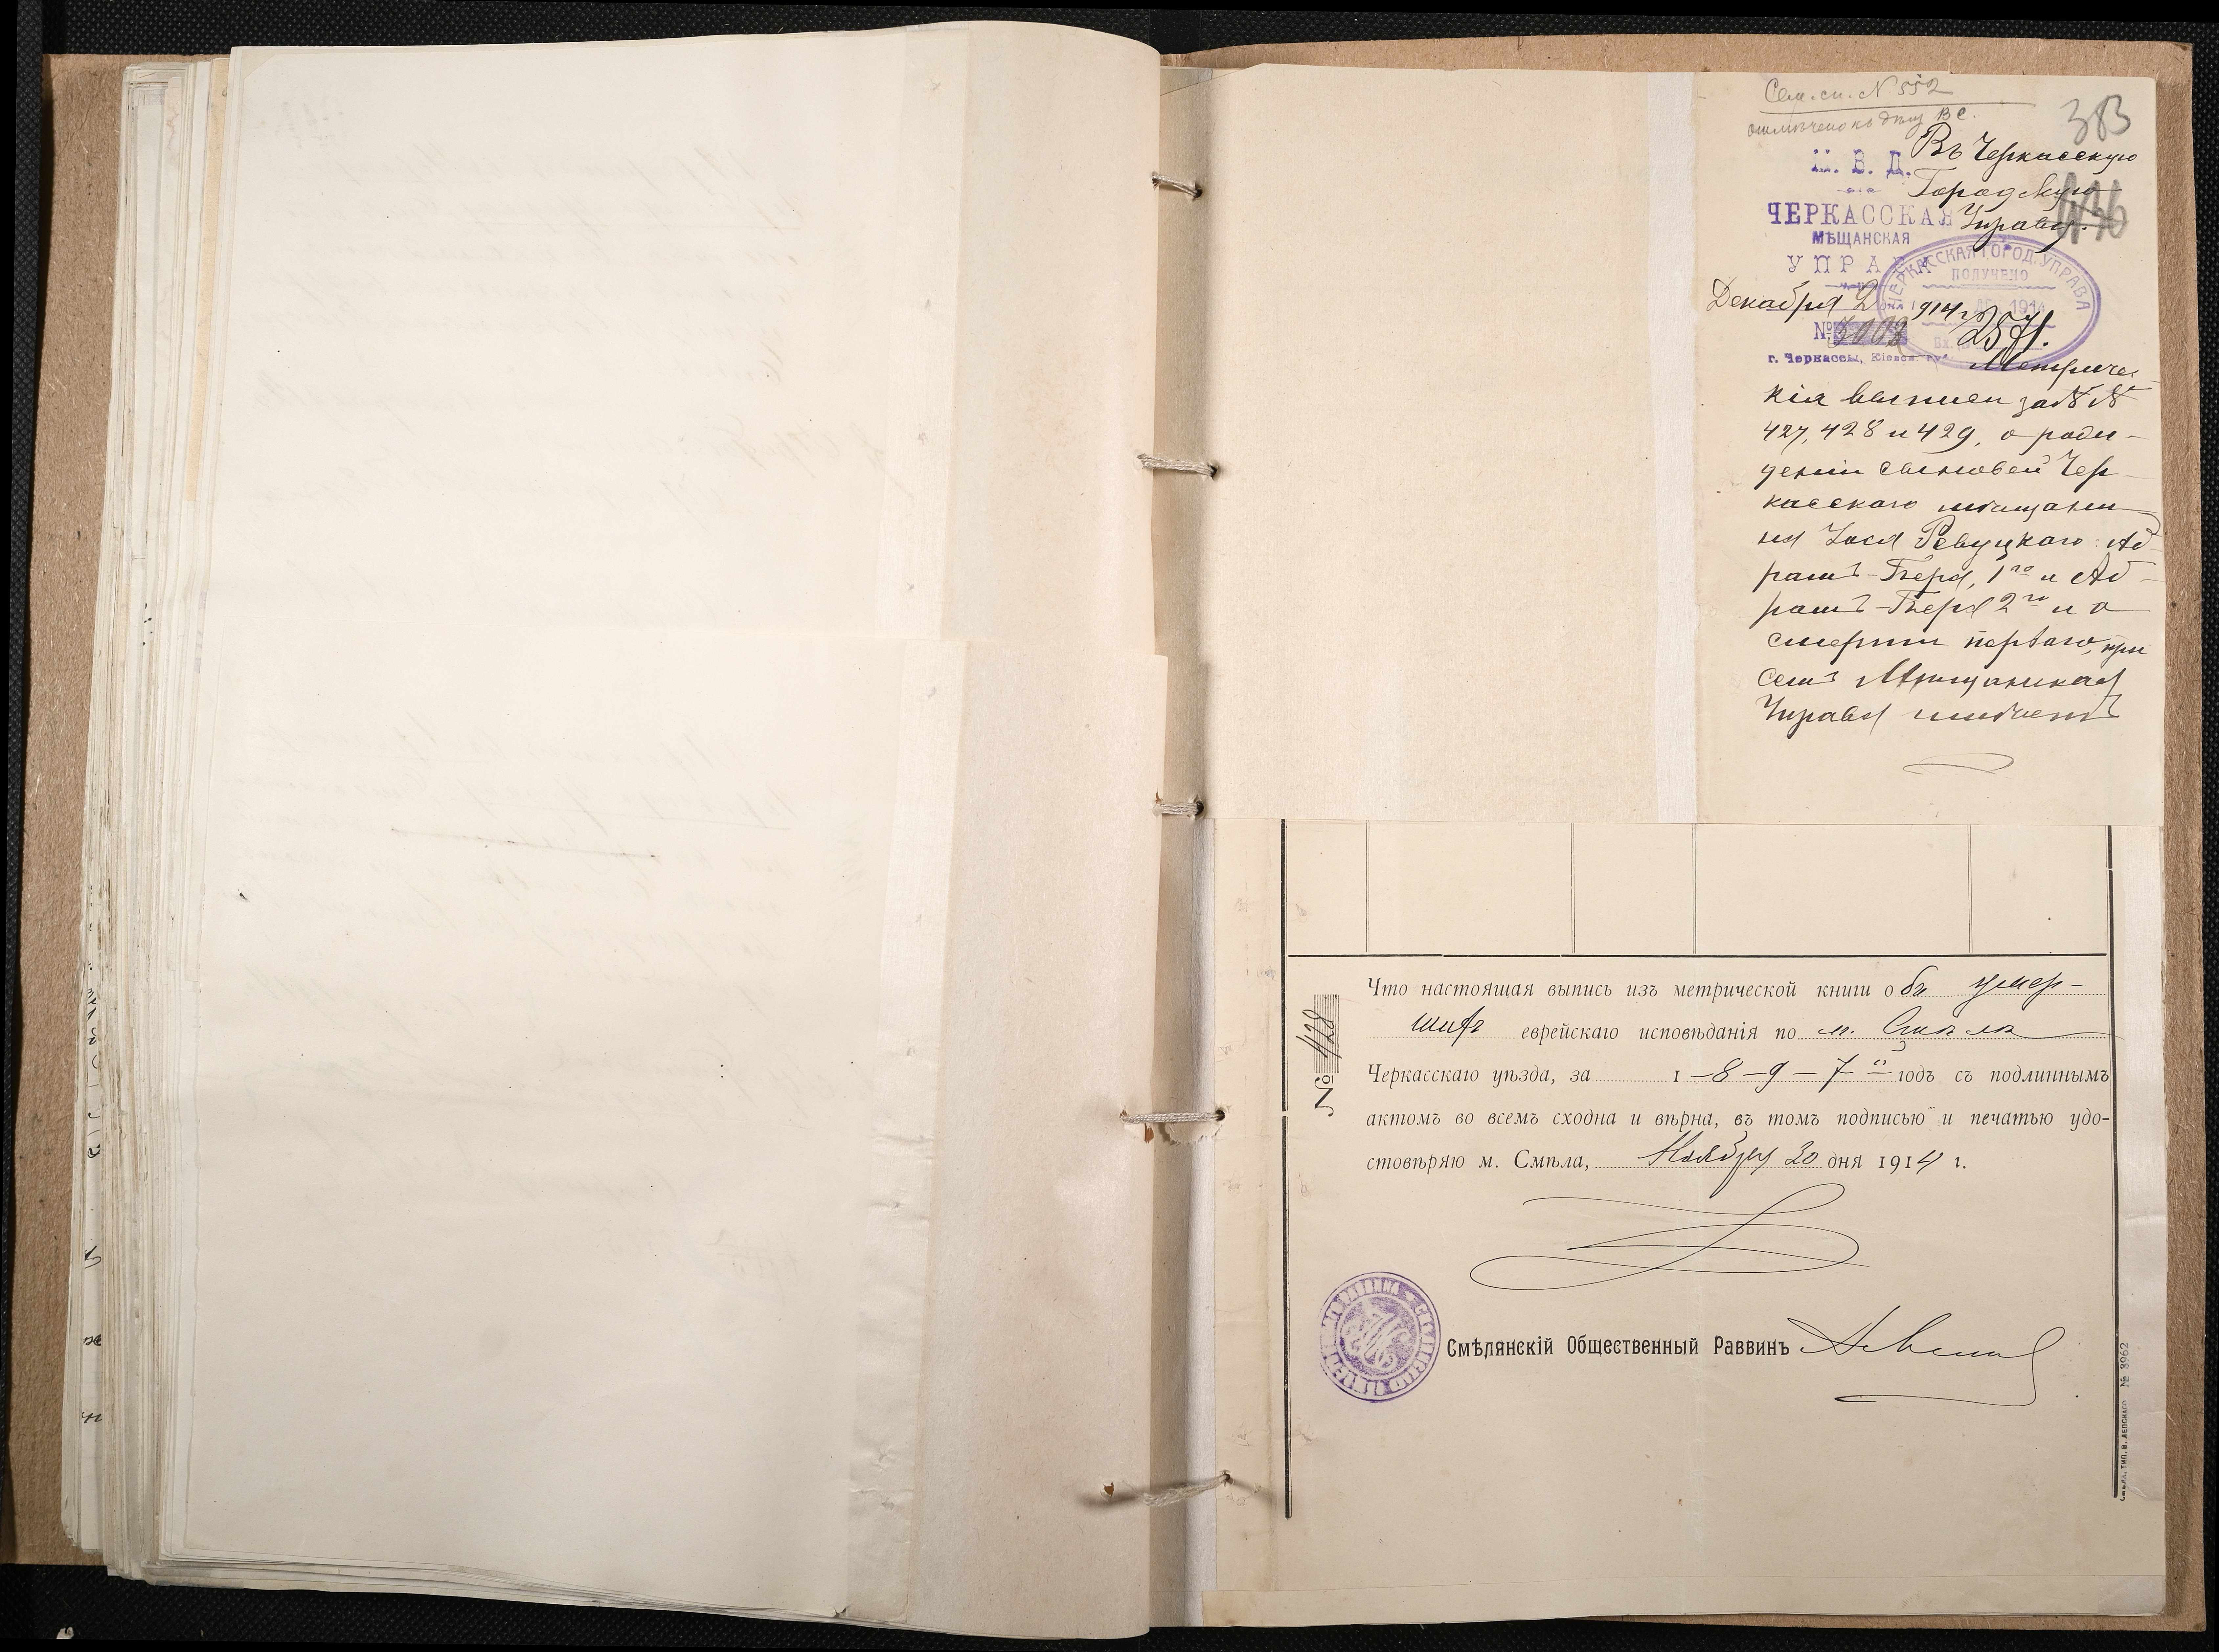 Сем. сп. № 552
отмѣчено къ дѣлу ВС.
383
Въ Черкасскую
Городскую
Управу.
М. В. Д.
ЧЕРКАССКАЯ
МѢЩАНСКАЯ
УПРАВА
ЧЕРКАССКАЯ ГОРОД. УПРАВА
ПОЛУЧЕНО
1914
Вх.
Декабря 2 дня 1914 г.
№ 3003
2571.
г. Черкассы, Кіевск. губ.
Метричес-
кія выписи за №№
427, 428 и 429, о рож-
деніи сыновей Чер-
касскаго мѣщани-
на Іося Ревуцкаго: Аб-
рамъ-Бера, 1го и Аб-
рамъ-Бера 2го и о
смерти перваго, при
семъ Мѣщанская
Управа
№ 428
Что настоящая выпись изъ метрической книги объ умер-
шихъ еврейскаго исповѣданія по м. Смѣлѣ
Черкасскаго уѣзда, за 1-8-9-7й годъ съ подлиннымъ
актомъ во всемъ сходна и вѣрна, въ томъ подписью и печатью удо-
стовѣряю м. Смѣла, Ноября 20 дня 1914 г.
Смѣлянскій Общественный Раввинъ
№ 3962